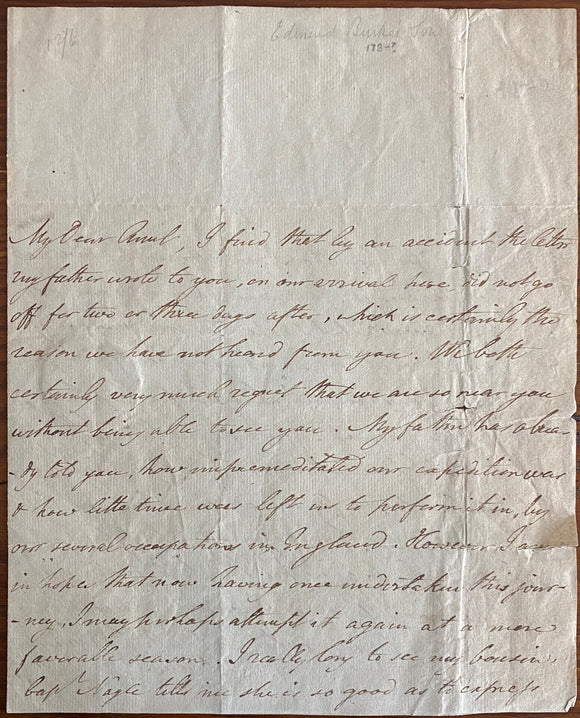 12/6
Edmund Burkes Son
178-?
My Dear Aunt, I find that by an accident the letter
my father wrote to you, on our arrival here did not go
off for two or three days after, which is certainly the
reason we have not heard from you. We both
certainly very much regret that we are so near you
without being able to see you. My father has alrea-
-dy told you, how unpremeditated our expedition was
& how little time was left us to perform it in, by
our several occupations in England. However I am
in hopes that now having once undertaken this jour-
-ney, I may perhaps attempt it again at a more
favorable season. I really long to see my Cousin,
Capt Nagle tells me she is so good as to express